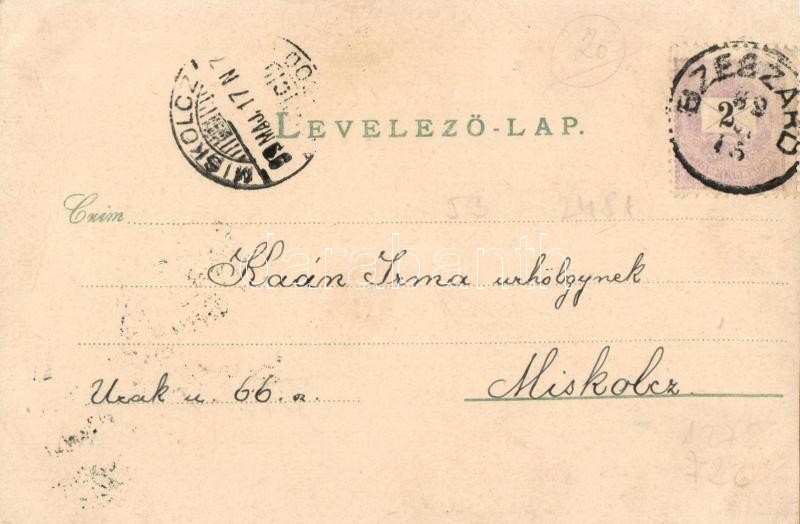 20
MISKOLCZ
99 MÁJ. 17 N 7
LEVELEZŐ-LAP.
SZEGSZÁRD
99
2
15
Czim
53 2481
Kaán Irma urhölgynek
darabanth
Uzak u. 66. sz.
Miskolcz
726